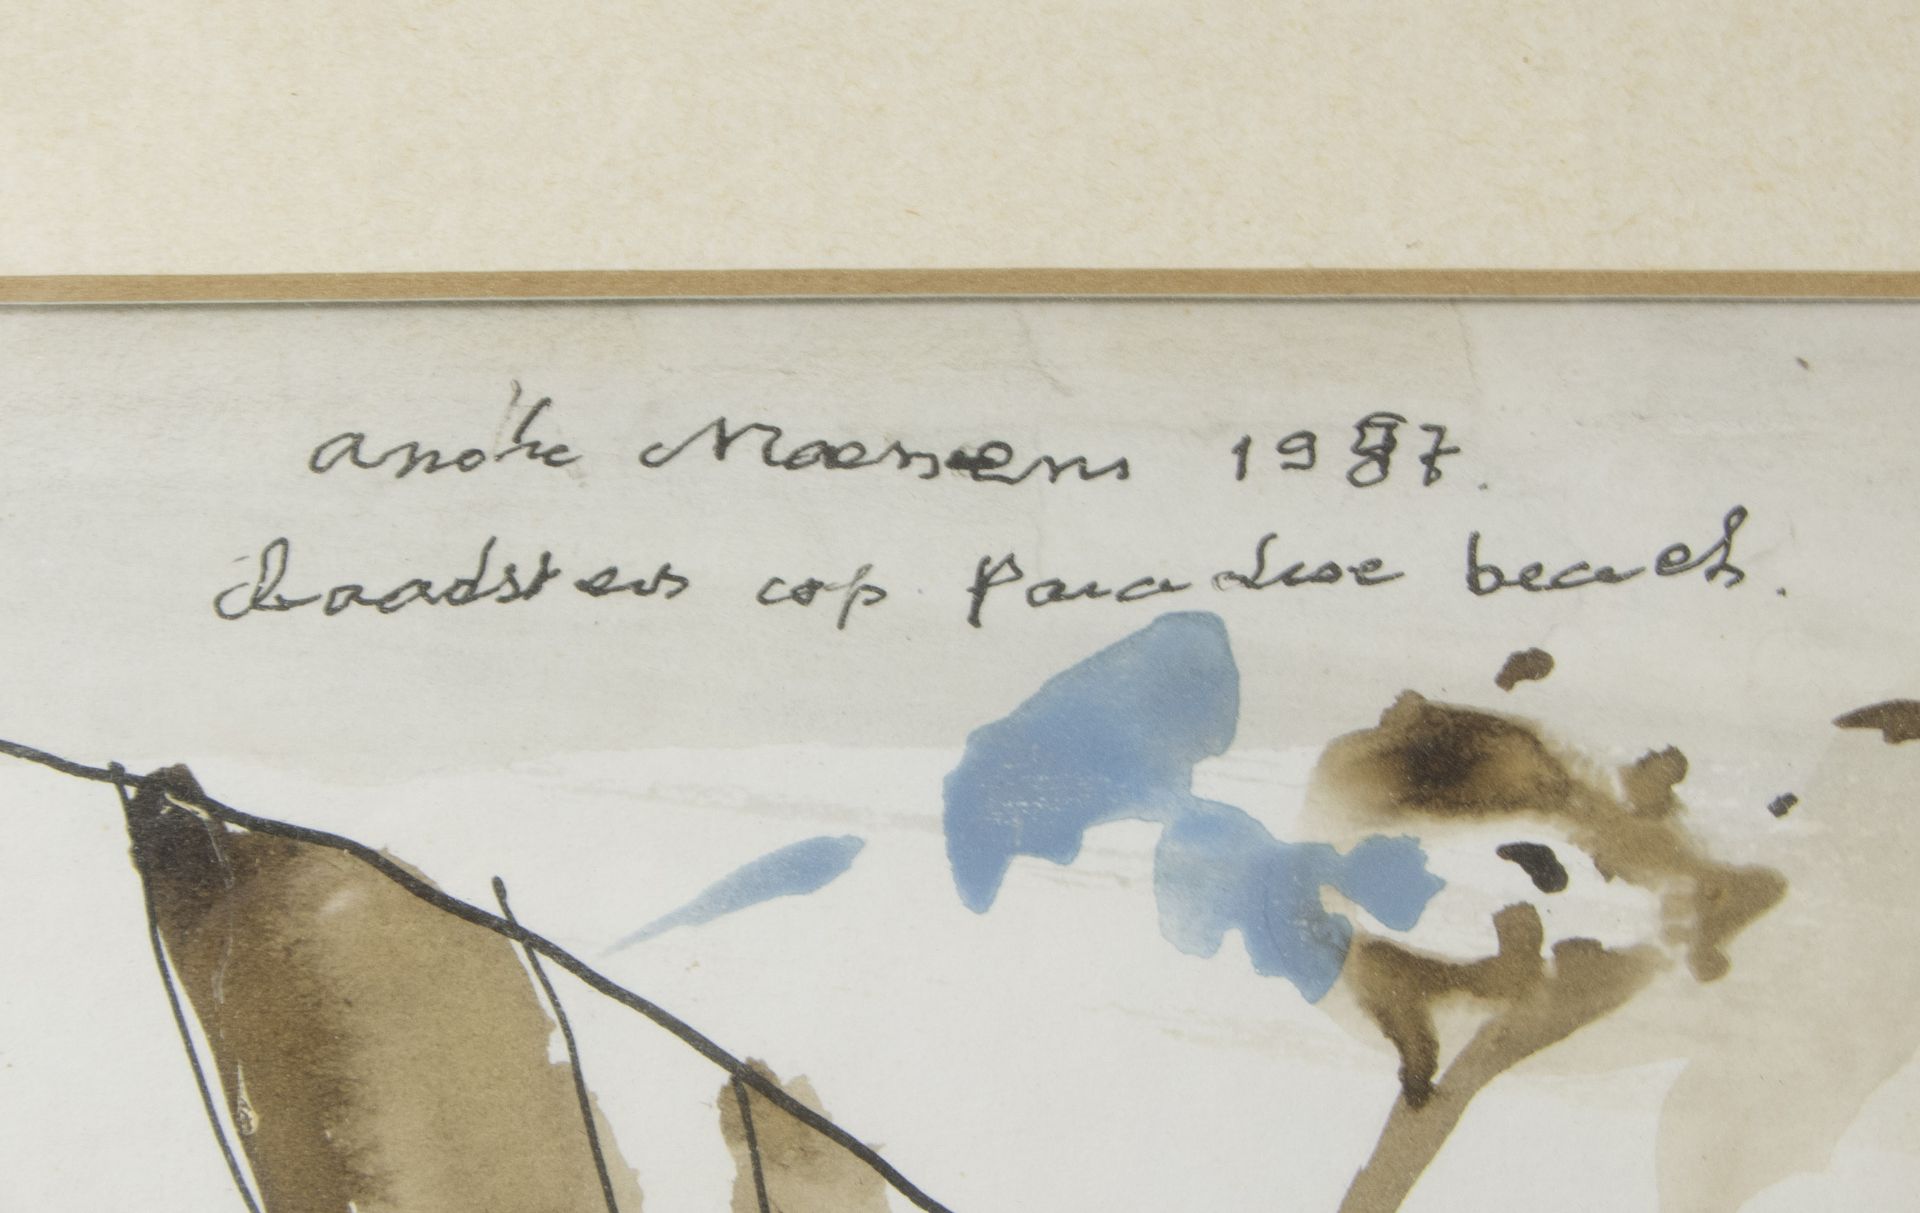 André Maessens 1987.
Baadsters op Paradise beach.